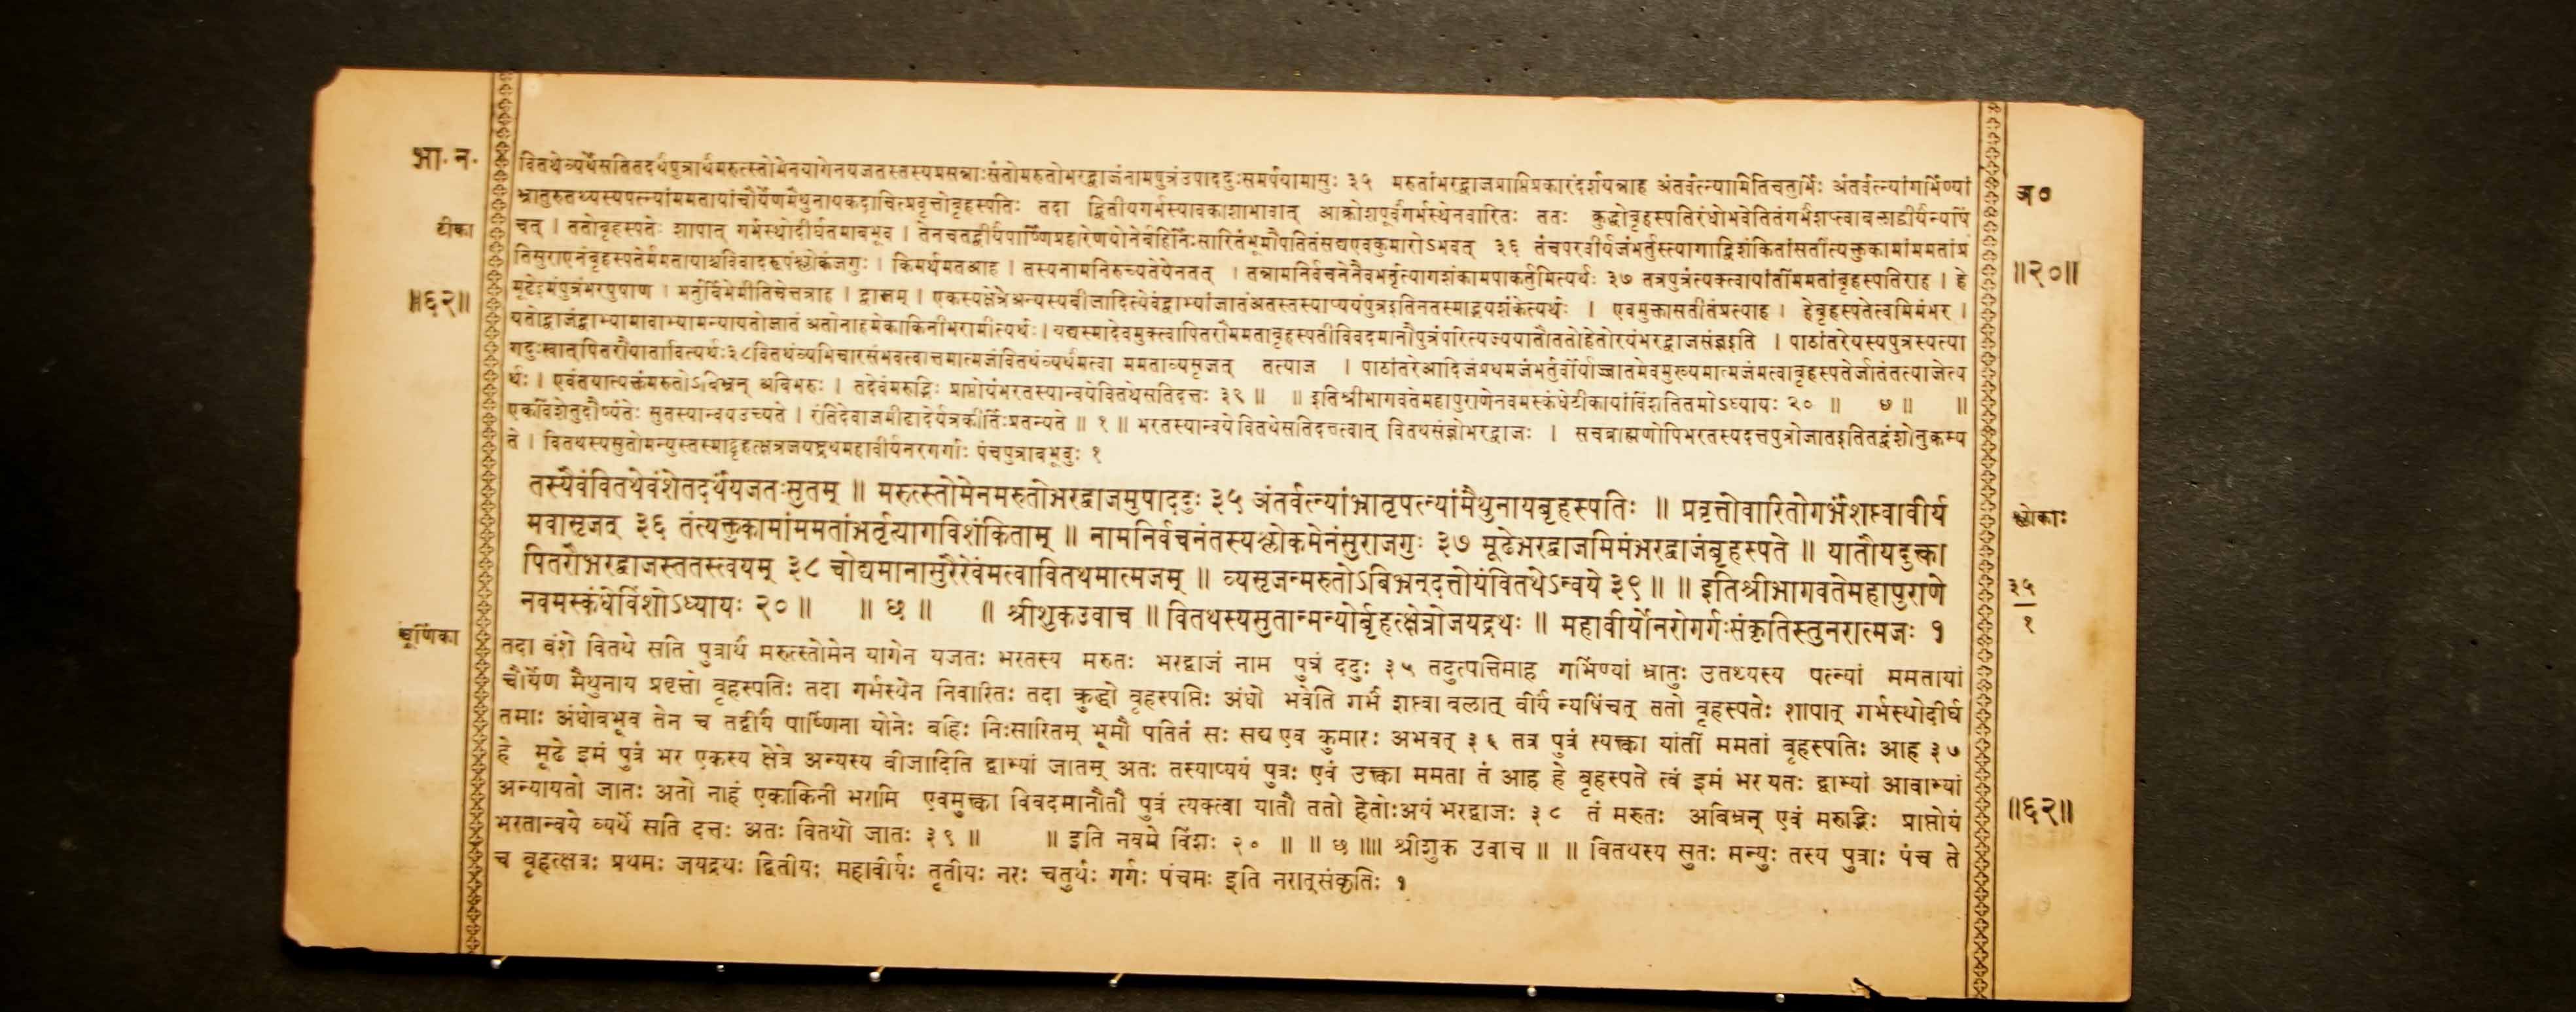 भा. न.
वितथेव्यर्थेसतितदर्थंपुत्रार्थंमरुत्स्तोमेनयागेनयजतस्तस्यप्रसन्नाःसंतोमरुतोभरद्वाजंनामपुत्रंउपाददुःसमर्पयामासुः ३५ मरुतांभरद्वाजप्राप्तिप्रकारंदर्शयन्नाह अंतर्वत्न्यामितिचतुर्भिः अंतर्वत्न्यांगर्भिण्यां
अ०
भ्रातुरुतथ्यस्यपत्न्यांममतायांचौर्येणमैथुनायकदाचित्प्रवृत्तोबृहस्पतिः तदा द्वितीयगर्भस्यावकाशाभावात् आक्रोशपूर्वंगर्भस्थेनवारितः ततः क्रुद्धोबृहस्पतिरंधोभवेतितंगर्भंशप्त्वाबलाद्वीर्यंन्यषिं
टीका
चत् । ततोबृहस्पतेः शापात् गर्भस्थोदीर्घतमाबभूव । तेनचतद्वीर्यंपार्ष्णिप्रहारेणयोनेर्बहिर्निःसारितंभूमौपतितंसद्यएवकुमारोऽभवत् ३६ तंचपरवीर्यजंभर्तुस्त्यागाद्विशंकितांसतींत्यक्तुकामांममतांप्र
॥२०॥
तिसुराएनंबृहस्पतेर्ममतायाश्चविवादरूपंश्लोकंजगुः । किमर्थमतआह । तस्यनामनिरुच्यतेयेनतत् । तन्नामनिर्वचनेनैवभर्तृत्यागशंकामपाकर्तुमित्यर्थः ३७ तत्रपुत्रंत्यक्त्वायांतींममतांबृहस्पतिराह । हे
॥६२॥
मूढेइमंपुत्रंभरपुषाण । भर्तुर्बिभेमीतिचेत्तत्राह । द्वाजम् । एकस्यक्षेत्रेअन्यस्यबीजादित्येवंद्वाभ्यांजातंअतस्तस्याप्ययंपुत्रइतिनतस्माद्भयशंकेत्यर्थः । एवमुक्तासतीतंप्रत्याह । हेबृहस्पतेत्वमिमंभर ।
यतोद्वाजंद्वाभ्यामावाभ्यामन्यायतोजातं अतोनाहमेकाकिनीभरामीत्यर्थः । यद्यस्मादेवमुक्त्वापितरौममताबृहस्पतीविवदमानौपुत्रंपरित्यज्ययातौततोहेतोरयंभरद्वाजसंज्ञइति । पाठांतरेयस्यपुत्रस्यपत्या
गदुःखात्पितरौयातावित्यर्थः३८वितथंव्यभिचारसंभवत्वात्तमात्मजंवितथंव्यर्थंमत्वा ममताव्यसृजत् तत्याज । पाठांतरेआदिजंप्रथमजंभर्तुर्वीर्याज्जातमेवमुख्यमात्मजंमत्वाबृहस्पतेर्जातंतत्याजेत्य
र्थः । एवंतयात्यक्तंमरुतोऽबिभ्रन् अबिभरुः । तदेवंमरुद्भिः प्राप्तोयंभरतस्यान्वयेवितथेसतिदत्तः ३९ ॥ ॥ इतिश्रीभागवतेमहापुराणेनवमस्कंधेटीकायांविंशतितमोऽध्यायः २० ॥ ७ ॥ ॥
एकविंशेतुदौष्यंतेः सुतस्यान्वयउच्यते । रंतिदेवाजमीढादेर्यत्रकीर्तिःप्रतन्यते ॥ १ ॥ भरतस्यान्वये वितथेसतिदत्तत्वात् वितथसंज्ञोभरद्वाजः । सचब्राह्मणोपिभरतस्यदत्तपुत्रोजातइतितद्वंशोनुक्रम्य
ते । वितथस्यसुतोमन्युस्तस्माद्बृहत्क्षत्रजयद्रथमहावीर्यनरगर्गाः पंचपुत्राबभूवुः १
तस्यैवंवितथेवंशेतदर्थंयजतःसुतम् ॥ मरुत्स्तोमेनमरुतोभरद्वाजमुपाददुः ३५ अंतर्वत्न्यांभ्रातृपत्न्यांमैथुनायबृहस्पतिः ॥ प्रवृत्तोवारितोगर्भंशप्त्वावीर्य
श्लोकाः
मवासृजत् ३६ तंत्यक्तुकामांममतांभर्तृत्यागविशंकिताम् ॥ नामनिर्वचनंतस्यश्लोकमेनंसुराजगुः ३७ मूढेभरद्वाजमिमंभरद्वाजंबृहस्पते ॥ यातौयदुक्त्वा
पितरौभरद्वाजस्ततस्त्वयम् ३८ चोद्यमानासुरैरेवंमत्वावितथमात्मजम् ॥ व्यसृजन्मरुतोऽबिभ्रन्दत्तोयंवितथेऽन्वये ३९ ॥ ॥ इतिश्रीभागवतेमहापुराणे
३५
१
नवमस्कंधेविंशोऽध्यायः २० ॥ ॥ छ ॥ ॥ श्रीशुकउवाच ॥ वितथस्यसुतान्मन्योर्बृहत्क्षेत्रोजयद्रथः ॥ महावीर्योनरोगर्गःसंकृतिस्तुनरात्मजः १
चूर्णिका
तदा वंशे वितथे सति पुत्रार्थं मरुत्स्तोमेन यागेन यजतः भरतस्य मरुतः भरद्वाजं नाम पुत्रं ददुः ३५ तदुत्पत्तिमाह गर्भिण्यां भ्रातुः उतथ्यस्य पत्न्यां ममतायां
चौर्येण मैथुनाय प्रवृत्तो बृहस्पतिः तदा गर्भस्थेन निवारितः तदा क्रुद्धो बृहस्पतिः अंधो भवेति गर्भं शप्त्वा बलात् वीर्यं न्यषिंचत् ततो बृहस्पतेः शापात् गर्भस्थोदीर्घ
तमाः अंधोबभूव तेन च तद्वीर्यं पार्ष्णिना योनेः बहिः निःसारितम् भूमौ पतितं सः सद्य एव कुमारः अभवत् ३६ तत्र पुत्रं त्यक्त्वा यांतीं ममतां बृहस्पतिः आह ३७
हे मूढे इमं पुत्रं भर एकस्य क्षेत्रे अन्यस्य बीजादिति द्वाभ्यां जातम् अतः तस्याप्ययं पुत्रः एवं उक्त्वा ममता तं आह हे बृहस्पते त्वं इमं भर यतः द्वाभ्यां आवाभ्यां
अन्यायतो जातः अतो नाहं एकाकिनी भरामि एवमुक्त्वा विवदमानौतौ पुत्रं त्यक्त्वा यातौ ततो हेतोःअयं भरद्वाजः ३८ तं मरुतः अबिभ्रन् एवं मरुद्भिः प्राप्तोयं
॥६२॥
भरतान्वये व्यर्थे सति दत्तः अतः वितथो जातः ३९ ॥ ॥ इति नवमे विंशः २० ॥ ॥ छ ॥॥ श्रीशुक उवाच ॥ ॥ वितथस्य सुतः मन्युः तस्य पुत्राः पंच ते
च बृहत्क्षत्रः प्रथमः जयद्रथः द्वितीयः महावीर्यः तृतीयः नरः चतुर्थः गर्गः पंचमः इति नरात्संकृतिः १